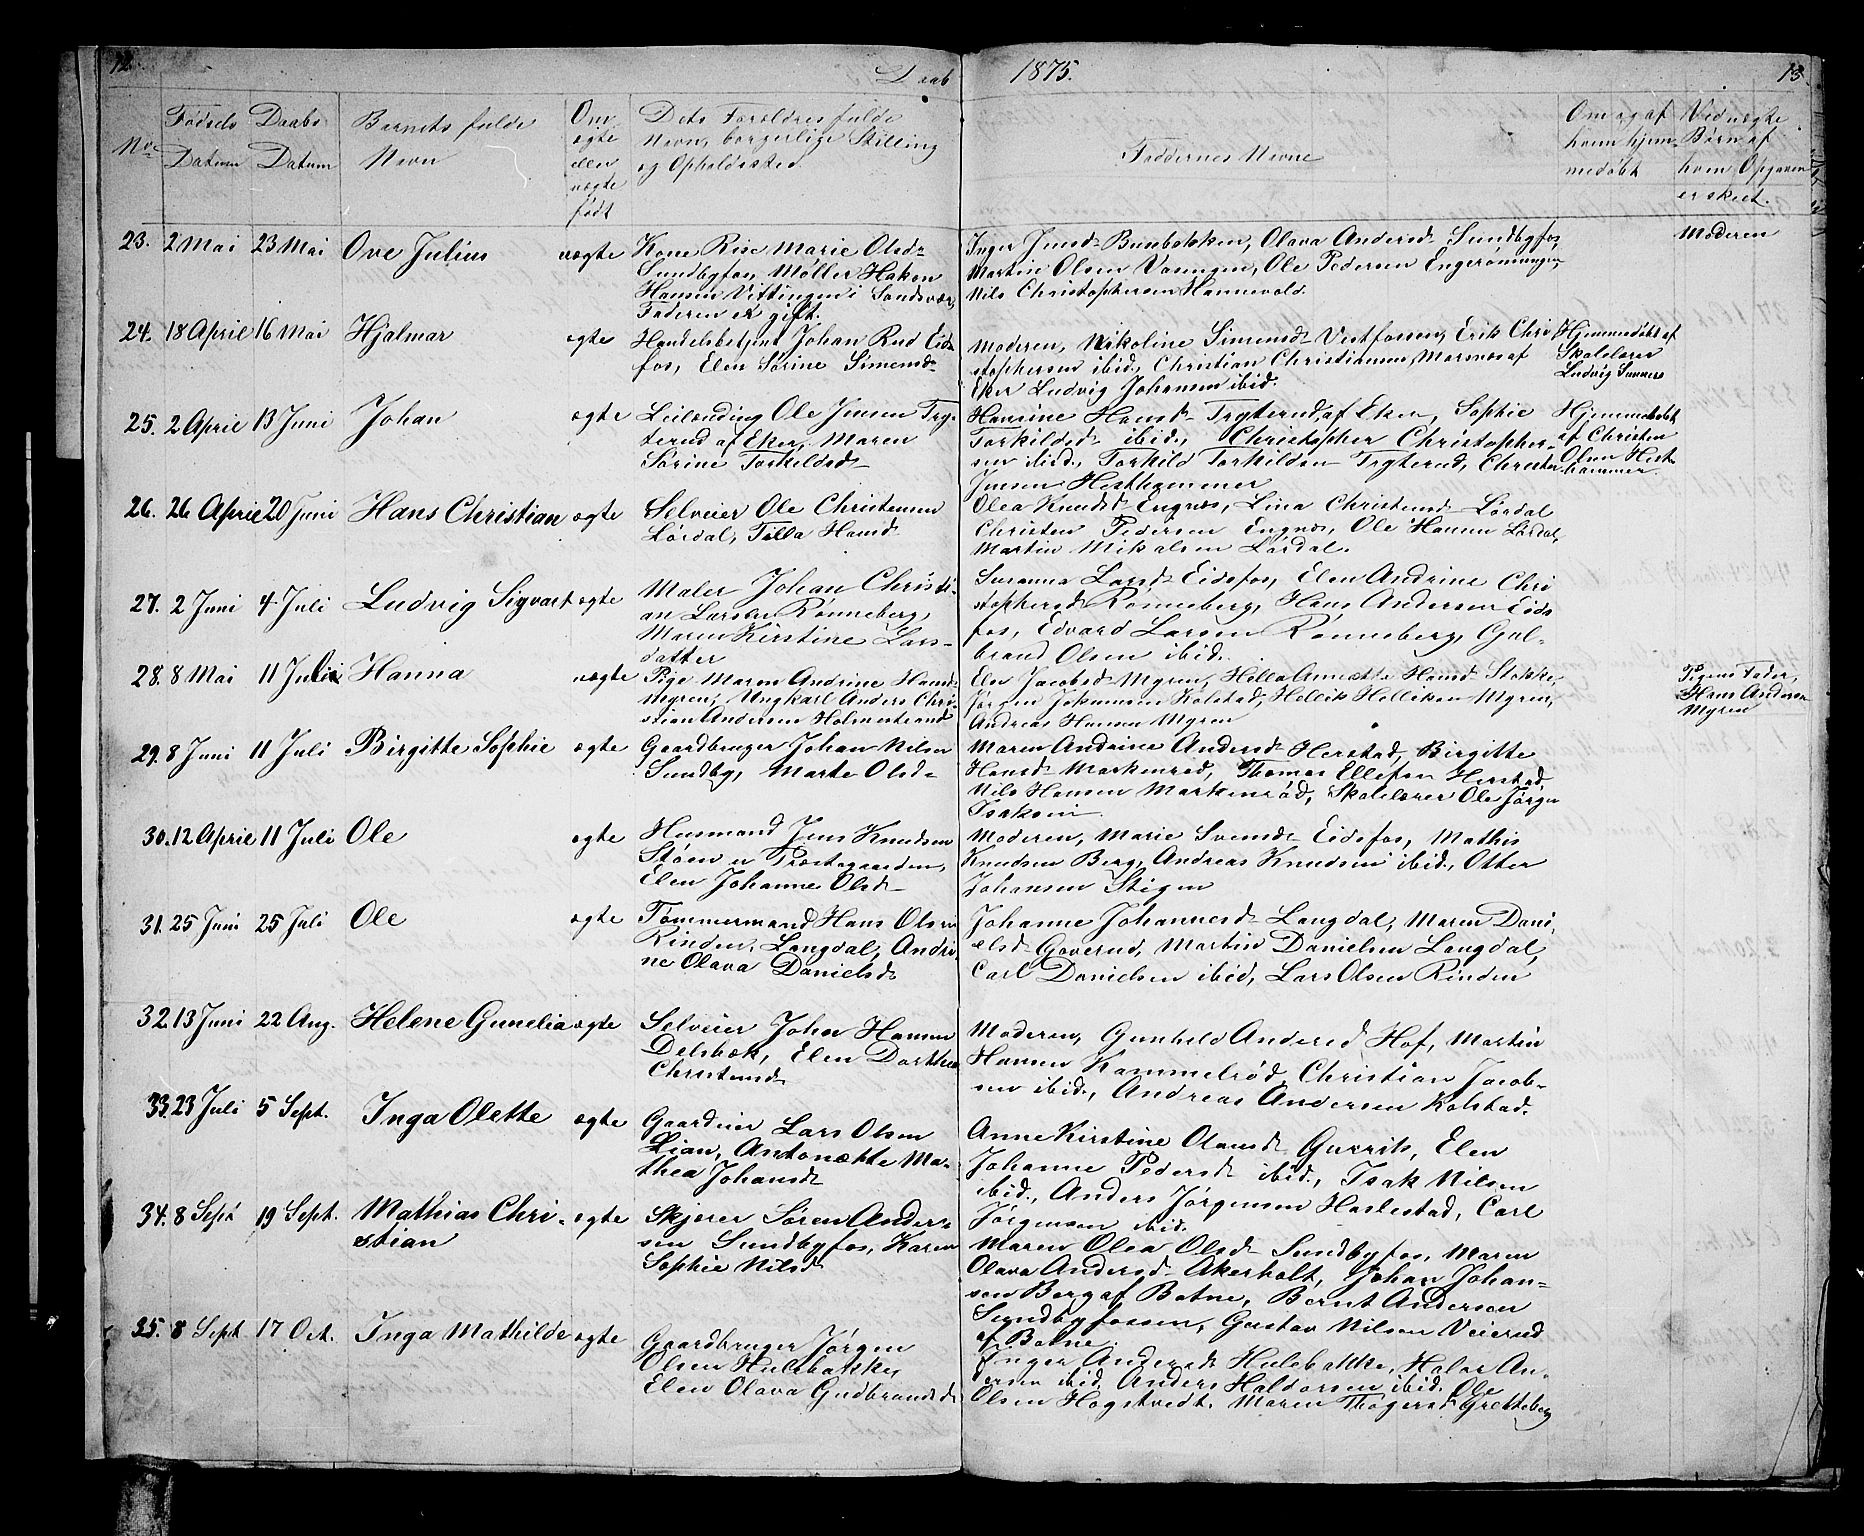 12. Daab 1875. 13.
No
Fødsels Datum
Daabs Datum
Barnets fulde Navn
Om ægte eller uægte født
Dets Forældres fulde
Navn, borgerlige Stilling
og Opholdssted.
Faddernes Navne
Om og af
hvem hjem-
medøbt
Ved uægte
Børn af
hvem Opgaven
er skeet.
23. 2 Mai 23 Mai Ove Julius uægte
Kone Rise Marie Olsd-
Sundbyfos, Møller Haken
Hansen Vittingen i Sandsvær,
Faderen er gift.
Inger Jensd- Bunbakken, Olava Andersd- Sundbyfos,
Martin Olsen, Ole Pedersen
Nils Christophersen Hannevold.
Moderen
24. 18 April 16 Mai Hjalmar ægte
Handelsbetjent Johan Rud Eids
fos, Elen Sørine Simensd-
Moderen, Nikoline Simensd- Vestfossen, Erik Chri
stophersen ibid., Christian Christiansen, af
Eker Ludvig Johansen ibid.
Hjemmedøbt af
Skolelærer
Ludvig
25. 2 April 13 Juni Johan ægte
Leilænding Ole Jensen Tryg
terud af Eker, Maren
Sørine Torkildsd-
Hansine Hansd- Trygterud, af Eker, Sophie
Torkildsd- ibid., Christopher Christopher-
sen ibid., Torkild Torkildsen Trygterud, Christen
Jensen Hesthammer
Hjemmedøbt
af Christen
Olsen Hest
hammer.
26. 26 April 20 Juni Hans Christian ægte
Selveier Ole Christensen
Lørdal, Tilla Hansd-
Olea Knudsd- Engnæs, Lina Christensd- Lørdal
Christen Pedersen Engnæs, Ole Hansen Lørdal,
Martin Mikalsen Lørdal.
27. 2 Juni 4 Juli Ludvig Sigvart ægte
Maler Johan Christi-
an Larsen Rønneberg,
Maren Kirstine Lars-
datter
Susanna Larsd- Eidsfos, Elen Andrine Chri
stophersd- Rønneberg, Hans Andersen Eids
fos, Edvard Larsen Rønneberg, Gul-
brand Olsen ibid.
28. 8 Mai 11 Juli Hanna uægte
Pige Maren Andrine Hansd-
myren, Ungkarl Anders Chri-
stian Andersen Holmestrand
Elen Jacobsd- Myren, Helle Annette Hansd- Stokke,
Jørgen Johannsen Kolstad, Hellik Helliksen Myren,
Andreas Hansen Myren
Pigens Fader,
Hans Andersen
Myren
29. 8 Juni 11 Juli Birgitte Sophie ægte
Gaardbruger Johan Nilsen
Sundby, Marte Olsd-
Maren Andrine Andersd- Herstad, Birgitte
Hansd- Markerød, Thomas Ellefsen Herstad,
Nils Hansen Markerød, Skolelærer Ole Jørgen
Isaksen
30. 12 April 11 Juli Ole ægte
Husmand Jens Knudsen
Støen u Præstegaarden,
Elen Johanne Olsd-
Moderen, Marie Svensd- Eidsfos, Mathis
Knudsen Berg, Andreas Knudsen ibid., Otter
Johansen Stigen
31. 25 Juni 25 Juli Ole ægte
Tømmermand Hans Olsen
Rinden, Langdal, Andri
ne Olava Danielsd-
Johanne Johannesd- Langdal, Maren Dani,
elsd- Goverud, Martin Danielsen Langdal,
Carl Danielsen ibid., Lars Olsen Rinden
32. 13 Juni 22 Aug. Helene Gunelia ægte
Selveier John Hansen
Delsbæk, Elen Dorthea
Christensd-
Moderen, Gunhild Andersd Hof, Martin
Hansen Kammelrød, Christian Jacob-
sen ibid., Andreas Andersen Kolstad.
33. 23 Juli 5 Sept. Inga Olette ægte
Gaardeier Lars Olsen
Lian, Antonætte Ma-
thea Johansd-
Anne Kirstine Olausd- Gusrik, Elen
Johanne Pedersd- ibid., Isak Nilsen
ibid., Anders Jørgensen Haslestad, Carl
Jørgensen ibid.
34. 8 Sept 19 Sept. Mathias Chri-
stian ægte
Skjærer Søren Ander-
sen Sundbyfos, Karen
Sophie Nilsd-
Maren Olea Olsd- Sundbyfos, Maren
Olava Andersd- Akerholt, Johan Johan-
sen Berg af Botne, Bernt Andersen
Sundbyfossen, Gustav Nilsen Veierud
af Botne.
35. 8 Sept 17 Oct. Inga Mathilde ægte
Gaardbruger Jørgen
Olsen Hulebakke,
Elen Olava Gudbrandsd-
Inger Andersd- Hulebakke, Halvor An-
dersen ibid, Anders Haldorsen ibid. Ole
Olsen Hogstvedt, Maren Thøgersd Gretteberg